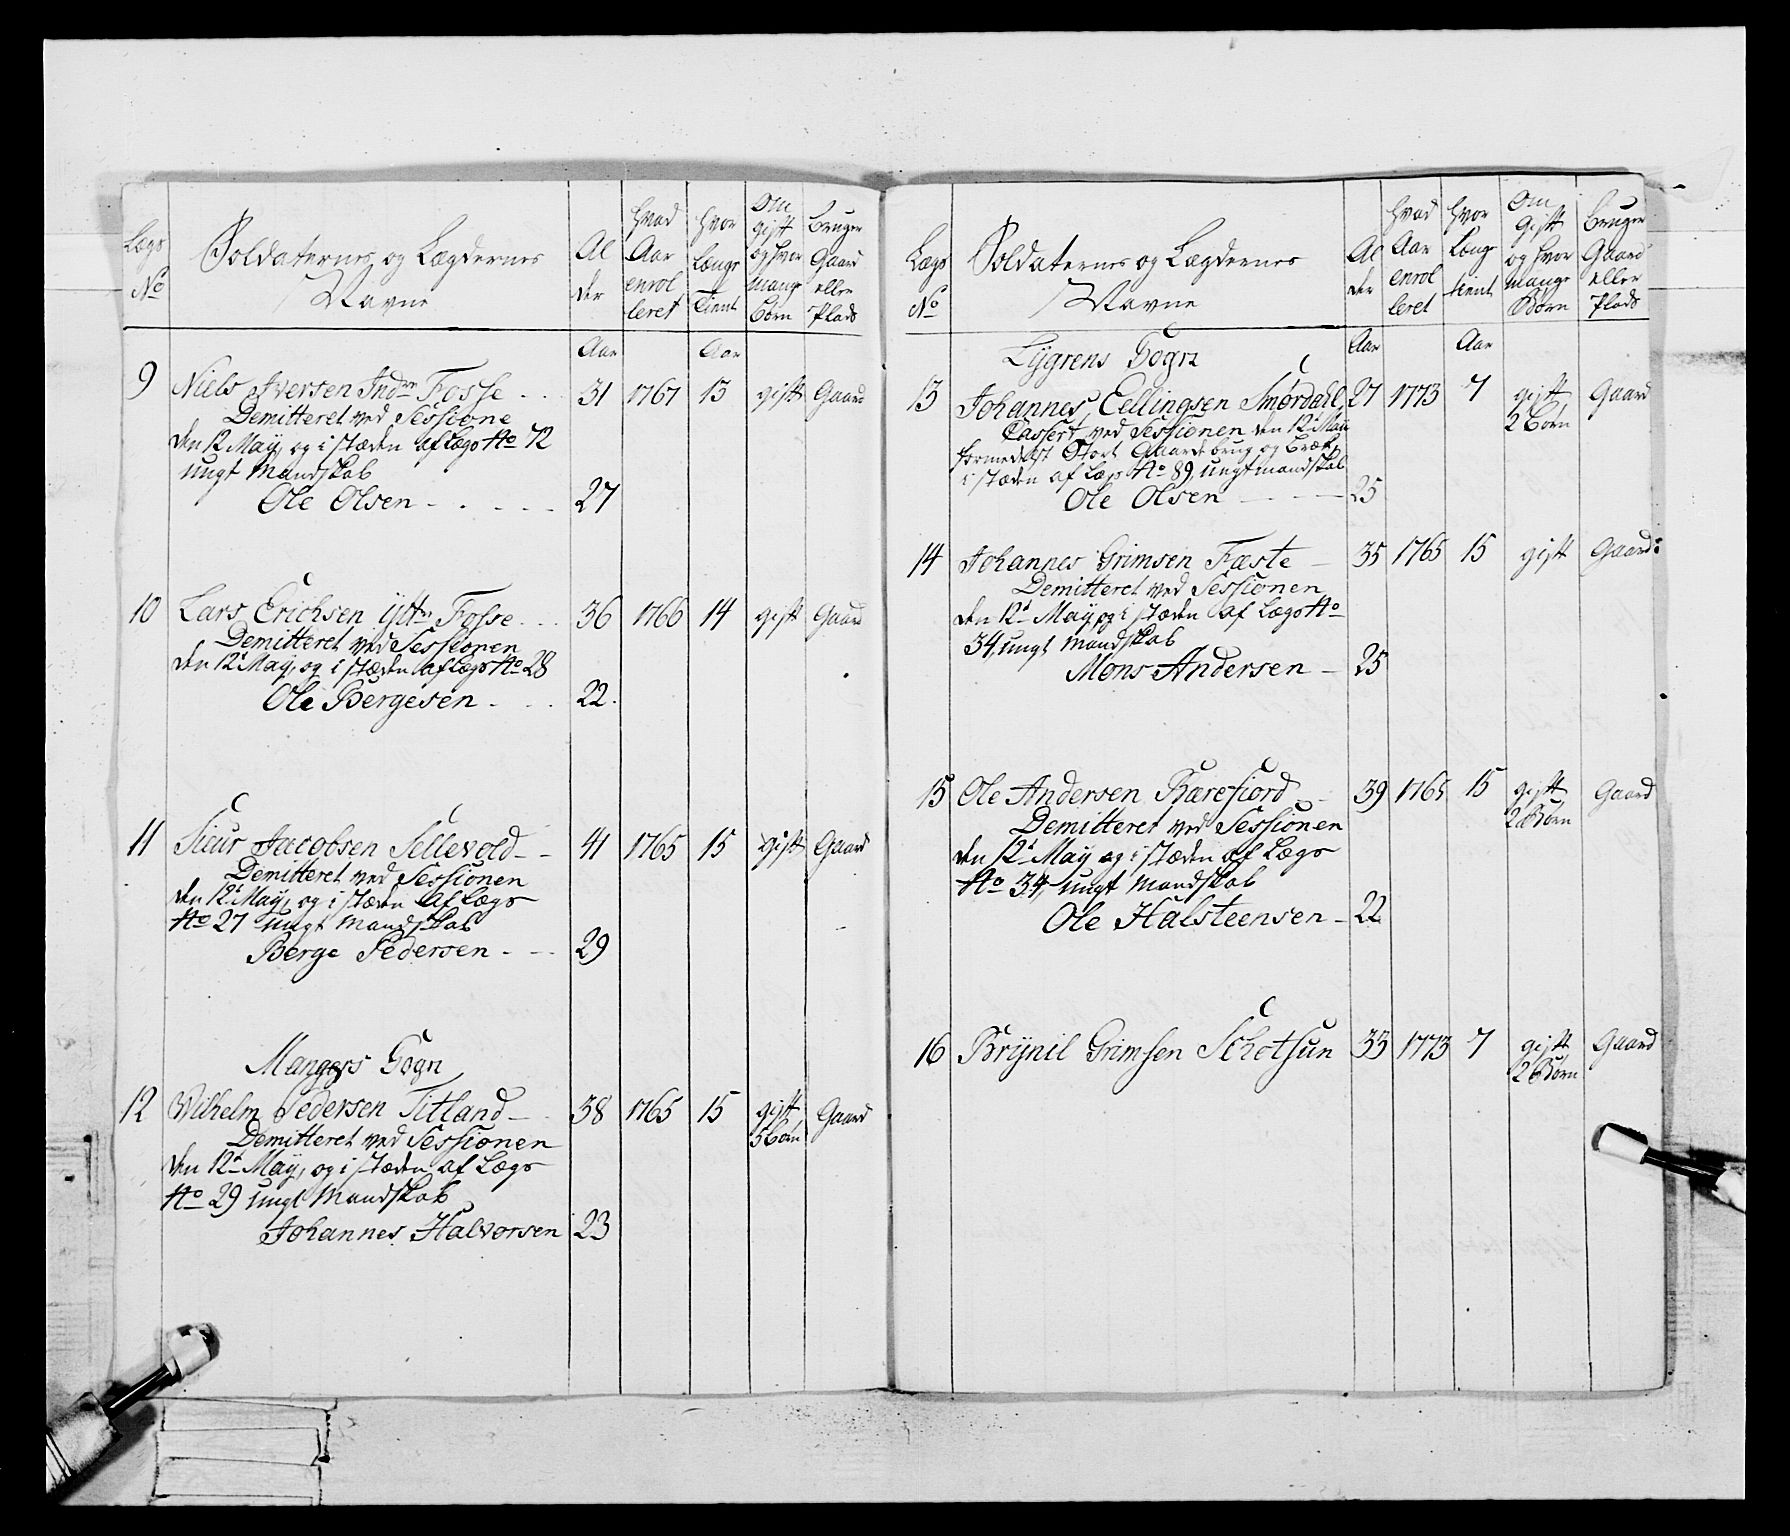 Lægs No
Soldaternes og Lægdernes Navne
Al der
Hvad Aar enrol leret
Hvor længe tient
Om gift og hvor mange Børn
Bruger Gaard eller Plads
Aar Aar
9 Niels Iversen Indre Fosse 31 1767 13 gift Gaard
Demitteret ved Sessione
den 12 May, og i stæden af Lægs No 72
ungt Mandskab
Ole Olsen 27
10 Lars Erichsen Ytre Fosse 36 1766 14 gift Gaard
Demitteret ved Sessionen
den 12t May, og i stæden af Lægs No 28
Ole Bergesen 22.
11 Siur Jacobsen Sellevold 41 1765 15 gift Gaard
Demitteret ved Sessionen
den 12t May, og i stæden af Lægs
No 27 ungt Mandskab
Berge Pedersen 29
Mangers Sogn
12 Wilhelm Pedersen Titland 38 1765 15 gift 5 Børn Gaard
Demitteret ved Sessionen
den 12t May, og i stæden af Lægs
No 29 ungt Mandskab
Johannes Halvorsen 23
Lægs No
Soldaternes og Lægdernes Navne
Al der
Hvad Aar enrol leret
Hvor længe tient
Om Gift og hvor mange Børn
Bruger Gaard eller Plads
Lygrens Sogn Aar Aar
13 Johannes Ellingsen Smørdahl 27 1773 7 gift 2 Børn Gaard
Cassert ved Sessionen den 12t May
formedelst Stort Gaarde brug og Bræk,
i stæden af Lægs No 89, ungt mandskab
Ole Olsen 25
14 Johannes Grimsen Fæste 35 1765 15 gift Gaard:
Demitteret ved Sessionen
den 12t May, og i stæden af Lægs No
34, ungt Mandskab
Mons Andersen 25
15 Ole Andersen Bærefiord 39 1765 15 gift 2 Børn Gaard
Demitteret ved Sessionen
den 12t May og i stæden af Lægs
No 34, ungt Mandskab
Ole Halsteensen 22
16 Brynil Grimsen Schotsun 33 1773 7 gift 2 Børn Gaard